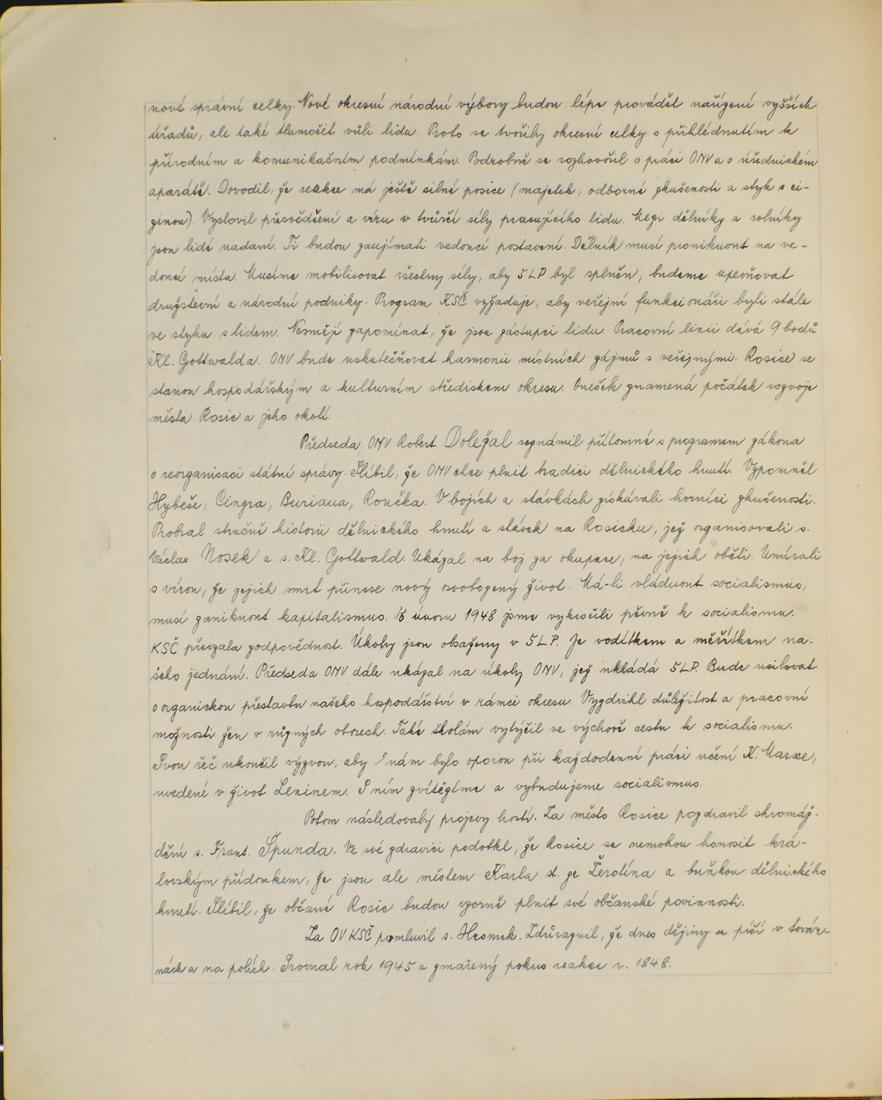 nové správní celky. Nové okresní národní výbory budou lépe provádět nařízení vyšších
úřadů, ale také tlumočit vůli lidu. Proto se tvořily okresní celky s přihlédnutím k
přírodním a komunikačním podmínkám. Podrobně se rozhovořil o práci ONV a o úřednickém
aparátě. Dovodil, že reakce má ještě silné posice (majetek, odborné zkušenosti a styk s ci-
zinou). Vyslovil přesvědčení a víru v tvůrčí síly pracujícího lidu. Mezi dělníky a rolníky
jsou lidé nadaní. Ti budou zaujímati vedoucí postavení. Dělník musí proniknout na ve-
doucí místa. Musíme mobilisovat všechny síly, aby 5LP byl splněn, budeme upevňovat
družstevní a národní podniky. Program KSČ vyžaduje, aby veřejní funkcionáři byli stále
ve styku s lidem. Nesmějí zapomínat, že jsou zástupci lidu. Pracovní linii dává 9 bodů
Kl. Gottwalda. ONV bude uskutečňovat harmonii místních zájmů s veřejnými. Rosice se
stanou hospodářským a kulturním střediskem okresu. Dnešek znamená počátek rozvoje
města Rosic a jeho okolí.
Předseda ONV Robert Doležal seznámil přítomné s programem zákona
o reorganisaci státní správy. Slíbil, že ONV chce plnit tradici dělnického hnutí. Vzpomněl
Hybeše, Cingra, Buriana, Roučka. V bojích a stávkách získávali horníci zkušenosti.
Probral stručně historii dělnického hnutí a stávek na Rosicku, jež organisovali s.
Václav Nosek a s. Kl. Gottwald. Ukázal na boj za okupace, na jejich oběti. Umírali
s vírou, že jejich smrt přinese nový osvobozený život. Má-li vládnout socialismus,
musí zaniknout kapitalismus. V únoru 1948 jsme vykročili pěvně k socialismu.
KSČ převzala zodpovědnost. Úkoly jsou obsaženy v 5LP. Je vodítkem a měřítkem na-
šeho jednání. Předseda ONV dále ukázal na úkoly ONV, jež ukládá 5LP. Bude usilovat
o organickou přestavbu našeho hospodářství v rámci okresu. Vyzdvihl důležitost a pracovní
možnosti žen v různých oborech. Také školám vytýčil ve výchově cestu k socialismu.
Svou řeč ukončil výzvou, aby nám bylo oporou při každodenní práci učení K. Marxe,
uvedené v život Leninem. S ním zvítězíme a vybudujeme socialismus.
Potom následovaly projevy hostí. Za město Rosice pozdravil shromáž-
dění s. Frant. Špunda. Ve své zdravici podotkl, že Rosice se nemohou honosit krá-
lovským přídomkem, že jsou ale městem Karla st. ze Žerotína a buňkou dělnického
hnutí. Slíbil, že občané Rosic budou vzorně plnit své občanské povinnosti.
Za OV KSČ promluvil s. Hromek. Zdůraznil, že dnes dějiny se píší v továr-
nách a na polích. Srovnal rok 1945 a zmařený pokus reakce r. 1848.